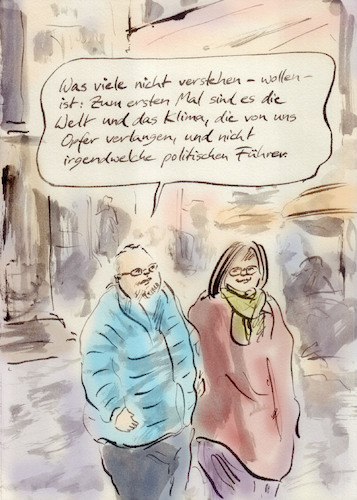 Was viele nicht verstehen – wollen –
ist: Zum ersten Mal sind es die
Welt und das Klima, die von uns
Opfer verlangen, und nicht
irgendwelche politischen Führer.